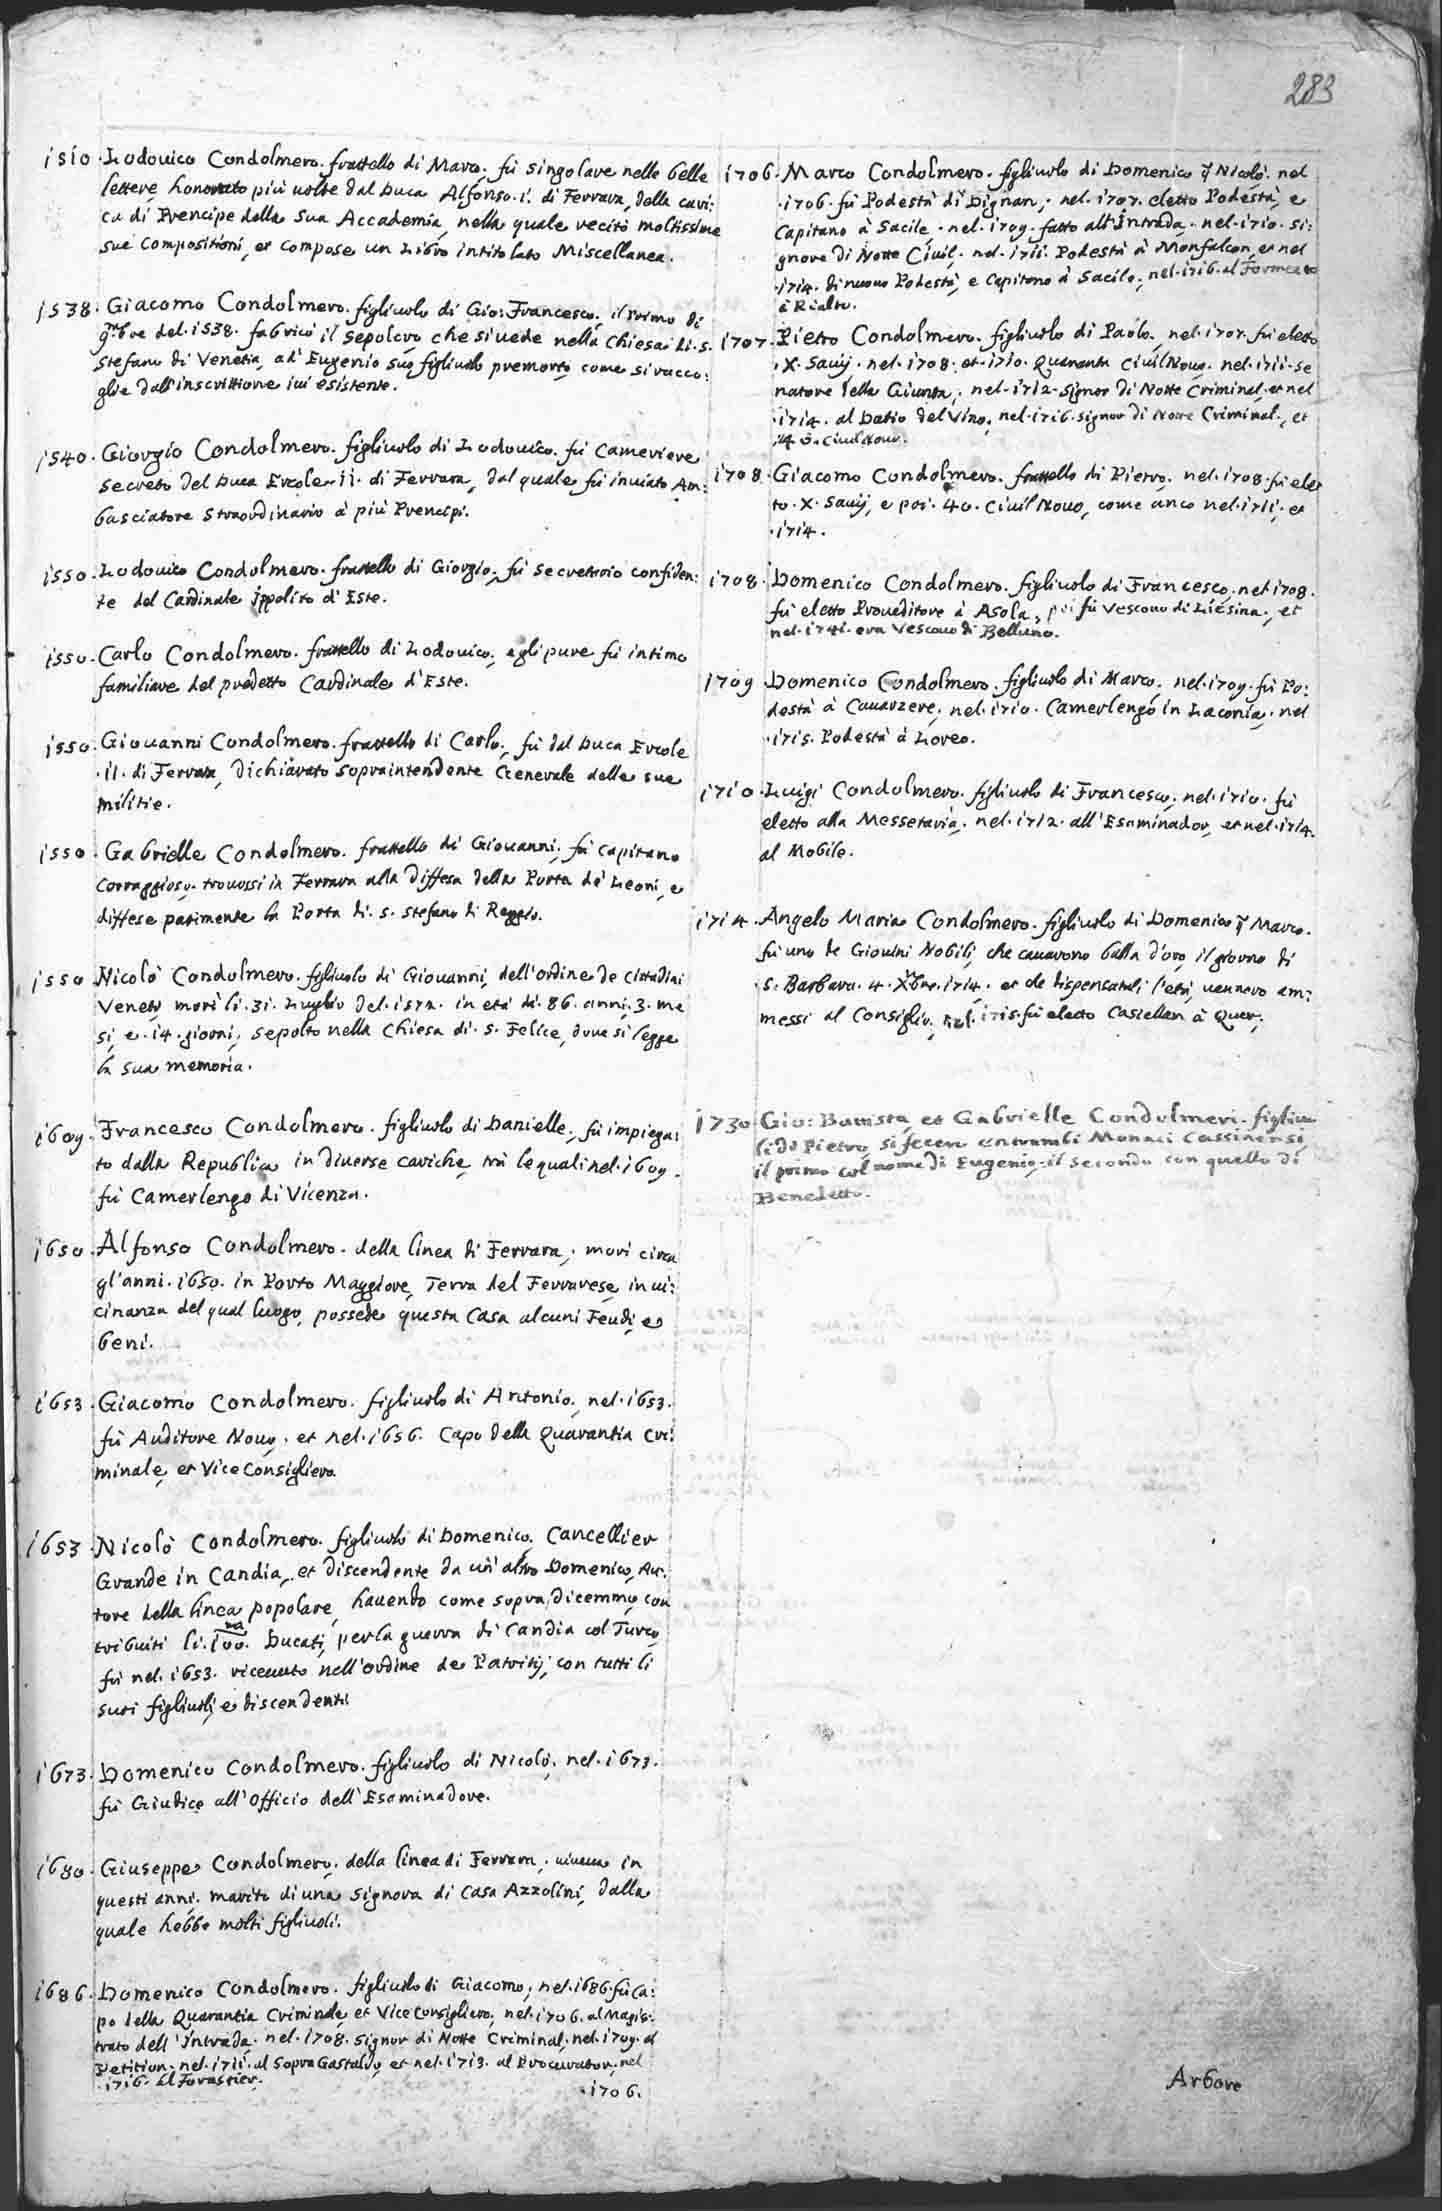 283
1510. Lodouico Condolmero. frattello di Marco, fù singolare nelle belle
lettere, honorato più uolte dal Duca Alfonso. i. di Ferrara, della cari:
ca di Prencipe della sua Accademia, nella quale recitò moltissime
sue compositioni, et compose un Libro intitolato Miscellanea.
1538. Giacomo Condolmero. figliuolo di Gio: Francesco, il primo di
9mbre del. 1538. fabricò il sepolcro che si uede nella Chiesa di. S.
Stefano di Venetia, ad' Eugenio suo figliuolo premorto, come si racco:
glie dall'inscrittione iui esistente.
1540. Giorgio Condolmero. figliuolo di Lodouico. fù Cameriere
secreto del Duca Ercole. ii. di Ferrara, dal quale fù inuiato Am:
basciatore straordinario à più Prencipi.
1550. Lodouico Condolmero. frattello di Giorgio, fù secrettario confiden:
te del Cardinale Ippolito d'Este.
1550. Carlo Condolmero. frattello di Lodouico, egli pure fù intimo
familiare del predetto Cardinale d'Este.
1550. Giouanni Condolmero. frattello di Carlo, fù dal Duca Ercole
.ii. di Ferrara, dichiarato sopraintendente Generale delle sue
militie.
1550. Gabrielle Condolmero. frattello di Giouanni, fù Capitano
Corraggioso. trouossi in Ferrara alla diffesa della Porta de' Leoni, e
diffese parimente la Porta di. S. Stefano di Reggio.
1550 Nicolò Condolmero. figliuolo di Giouanni, dell'ordine de Cittadini
Veneti, morì li. 31. Luglio del. 1572. in età di. 86. anni, 3. me
si, e. 14. giorni, sepolto nella Chiesa di. S. Felice, doue si legge
la sua memoria.
1609. Francesco Condolmero. figliuolo di Danielle, fù impiega:
to dalla Republica in diuerse cariche, trà le quali nel. 1609.
fù Camerlengo di Vicenza.
1650. Alfonso Condolmero. della linea di Ferrara, morì circa
gl'anni. 1650. in Porto Maggiore, Terra del Ferrarese, in ui:
cinanza del qual luogo, possede questa Casa alcuni Feudi, e
beni.
1653. Giacomo Condolmero. figliuolo di Antonio, nel. 1653.
fù Auditore Nouo. et nel. 1656. Capo della Quarantia Cri:
minale, et Vice Consigliero.
1653. Nicolò Condolmero. figliuolo di Domenico, Cancellier
Grande in Candia, et discendente da un'altro Domenico, Aut:
tore della linea popolare, hauendo come sopra dicemmo, con
tribuiti li. 100. ma Ducati, per la guerra di Candia col Turco,
fù nel. 1653. riceuuto nell'ordine de Patritij, con tutti li
suoi figliuoli, e discendenti.
1673. Domenico Condolmero. figliuolo di Nicolò, nel. 1673.
fù Giudice all'Officio dell'Esaminadore.
1680. Giuseppe Condolmero, della linea di Ferrara, uiueua in
questi anni, marito di una Signora di Casa Azzolini, dalla
quale hebbe molti figliuoli.
1686. Domenico Condolmero. figliuolo di Giacomo, nel. 1686. fù Ca:
po della Quarantia Criminale, et Vice Consigliero, nel. 1706. al Magis:
trato dell'Intrada, nel. 1708. Signor di Notte Criminal, nel. 1709. al
Petition, nel. 1711. al Sopra Gastaldo, et nel. 1713. al Procurator, nel
.1716. al Forastier.
.1706.
1706. Marco Condolmero. figliuolo di Domenico q Nicolò. nel
.1706. fù Podestà di Dignan, nel. 1707. eletto Podestà, e
Capitano à Sacile. nel. 1709. fatto all'Intrada. nel. 1710. Si:
gnore di Notte Civil, nel. 1711. Podestà à Monfalcon, et nel
.1714. di nuouo Podestà, e Capitano à Sacile, nel. 1716. al Formento
à Rialto.
1707. Pietro Condolmero. figliuolo di Paolo, nel. 1707. fù eletto
.X. Sauij. nel. 1708. et. 1710. Quaranta Ciuil Nouo. nel. 1711. Se
natore della Giunta, nel. 1712. Signor di Notte Criminal, et nel
.1714. al Datio del Vino, nel. 1716. Signor di Notte Criminal, et
40. Ciuil Nouo.
1708. Giacomo Condolmero. frattello di Pietro, nel. 1708. fù elet
to. X. Sauij, e poi. 40. Ciuil Nouo, come anco nel. 1711, et
.1714.
1708. Domenico Condolmero. figliuolo di Francesco, nel 1708.
fù eletto Proueditore à Asola, poi fù Vescouo di Liesina, et
nel. 1741. era Vescouo di Belluno.
1709 Domenico Condolmero. figliuolo di Marco, nel. 1709. fù Po:
destà à Cauarzere, nel. 1710. Camerlengo in Laconia, nel
.1715. Podestà à Loreo.
1710. Luigi Condolmero. figliuolo di Francesco, nel. 1710. fù
eletto alla Messetaria. nel. 1712. all'Esaminador, et nel. 1714.
al Mobile.
1714. Angelo Maria Condolmero. figliuolo di Domenico q Marco.
fù uno de Giouini Nobili, che cauarono balla d'oro, il giorno di
S. Barbara. 4. Xbre. 1714. et che dispensatali l'età, uennero am:
messi al Consiglio, nel. 1715. fù eletto Castellan à Quer.
1730 Gio: Battista, et Gabrielle Condolmeri. figliuo
li di Pietro, si fecero entrambi Monaci Cassinensi,
il primo col nome di Eugenio, il secondo con quello di
Benedetto.
Arbore